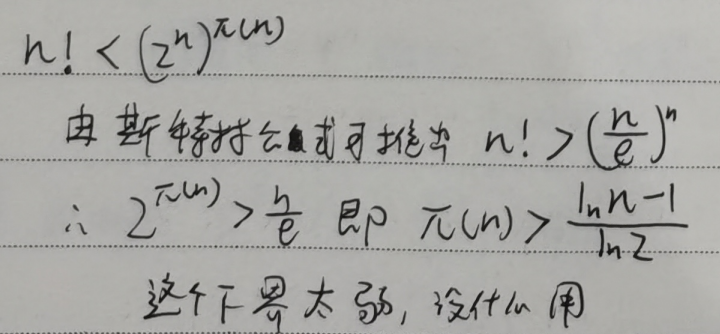 n! < (2^n)^{π(n)}
由斯特林公式可推出 n! > (n/e)^n
∴ 2^{π(n)} > n/e 即 π(n) > (ln n - 1)/(ln 2)
这个下界太弱,没什么用